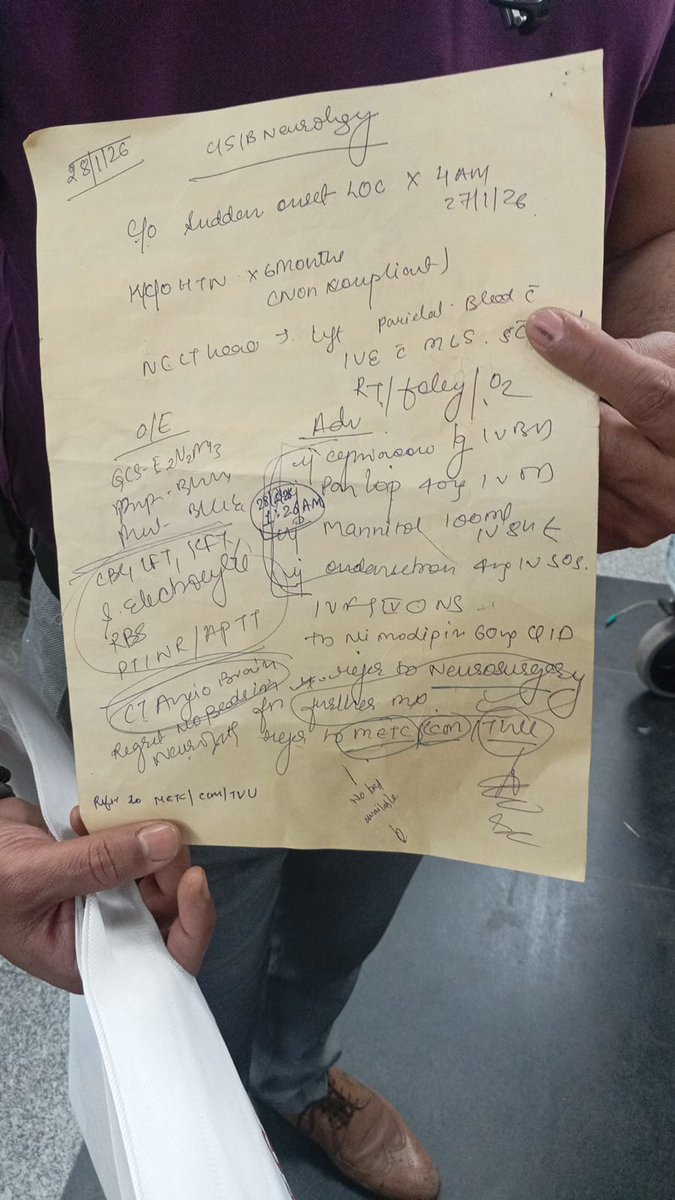 28/1/26
C/S/B Neurology
C/o Sudden onset LOC x 4AM
27/1/26
K/C/O HTN x 6 Months
(Non compliant)
NCCT head → left parietal Bleed c̄
IVE c̄ MLS.
RT/foley/O2
O/E
GCS- E2V2M3
CBC, LFT, KFT,
S. Electrolyte
RBS
PT/INR/APTT
CT Angio Brain
Adv
28/1/26
1:20AM
Inj ceftriaxone 1g IV BD
Inj Pantop 40mg IV OD
Inj Mannitol 100ml
IV
Inj ondansetron 4mg IV SOS.
NS
Tb Nimodipin 60mg QID
refer to Neurosurgery
further
Regret No Bed in
Neurosurgery refer to METC/CCM/TVU
No bed
available
Refer to METC/CCM/TVU